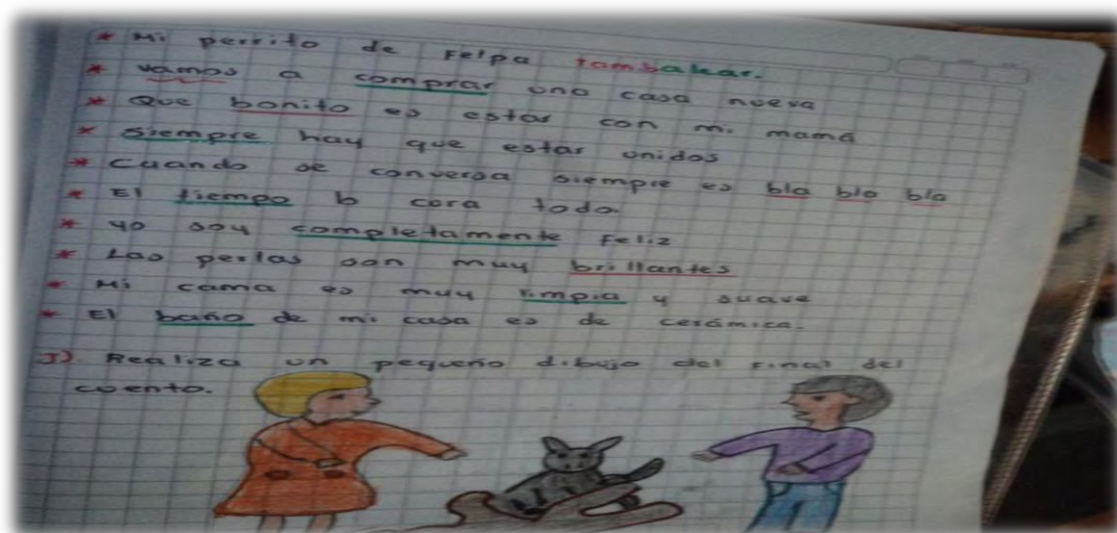 * Mi perrito de Felpa tambalear.
* vamos a comprar una casa nueva
* Que bonito es estar con mi mamá
* siempre hay que estar unidos
* Cuando se conversa siempre es bla bla bla
* El tiempo lo cura todo
* yo soy completamente Feliz
* Las perlas son muy brillantes
* Mi cama es muy limpia y suave
* El baño de mi casa es de cerámica.
J) Realiza un pequeño dibujo del Final del
cuento.